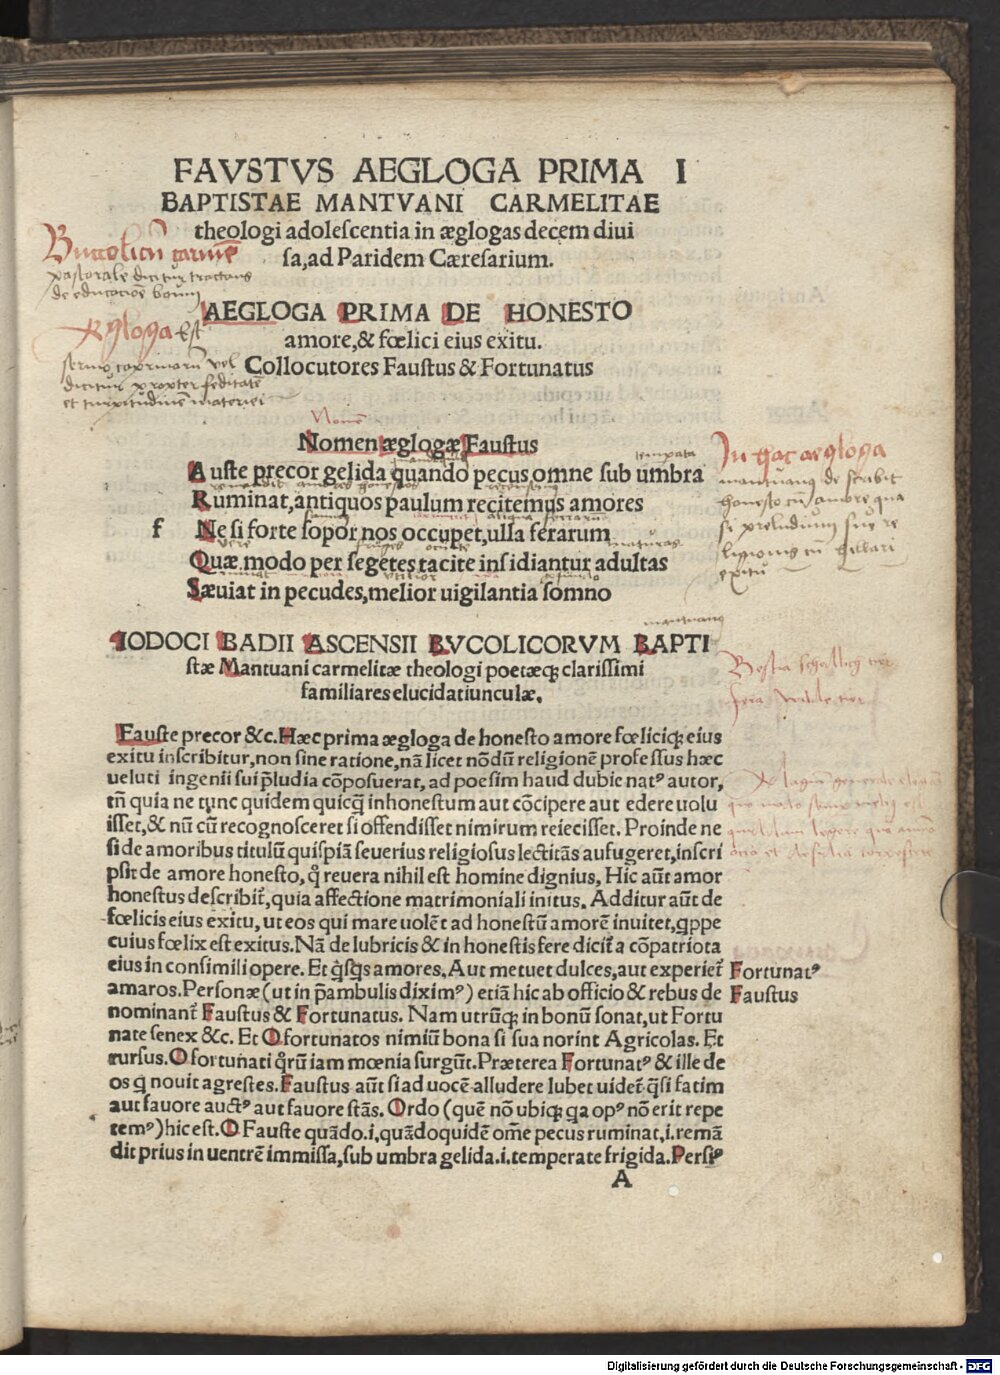 FAVSTVS AEGLOGA PRIMA I
BAPTISTAE MANTVANI CARMELITAE
theologi adolescentia in æglogas decem diui
sa,ad Paridem Cæresarium.
Bucolicū carmē
pastorale dicitur tractans
de educatiōe boum
AEGLOGA PRIMA DE HONESTO
amore,& fœlici eius exitu.
Collocutores Faustus & Fortunatus
Aegloga est
sermo caprinarū vel
dicitur propter feditatē
et turpitudinē materiei
Nomen æglogæ Faustus
Auste precor gelida quando pecus omne sub umbra
Ruminat,antiquos paulum recitemus amores
f Ne si forte sopor nos occupet,ulla ferarum
Quæ modo per segetes tacite insidiantur adultas
Sæuiat in pecudes,melior uigilantia somno
In hac aegloga
mantuanus de scribit
honesto cū amore qua
si preludium sue re
ligionis cū
exitu
IODOCI BADII ASCENSII BVCOLICORVM BAPTI
stæ Mantuani carmelitæ theologi poetæq; clarissimi
familiares elucidatiunculæ.
Fauste precor &c.Hæc prima ægloga de honesto amore fœliciq; eius
exitu inscribitur,non sine ratione,nā licet nōdū religionē professus hæc
ueluti ingenii sui p̄ludia cōposuerat, ad poesim haud dubie natꝰ autor,
tn̄ quia ne tunc quidem quicq̄ inhonestum aut cōcipere aut edere uolu
isset,& nū cū recognosceret si offendisset nimirum reiecisset. Proinde ne
si de amoribus titulū quispiā seuerius religiosus lectitās aufugeret,inscri
psit de amore honesto, q̊ reuera nihil est homine dignius, Hic aūt amor
honestus describit̄,quia affectione matrimoniali initus. Additur aūt de
fœlicis eius exitu, ut eos qui mare uolēt ad honestū amorē inuitet,q̱ppe
cuius fœlix est exitus.Nā de lubricis & in honestis fere dicit̄ a cōpatriota
eius in consimili opere. Et q̇sq̇s amores, Aut metuet dulces,aut experiet̄
amaros.Personæ (ut in p̄ambulis diximꝰ) etiā hic ab officio & rebus de
nominant̄ Faustus & Fortunatus. Nam utrūq; in bonū sonat,ut Fortu
nate senex &c. Et O fortunatos nimiū bona si sua norint Agricolas. Et
rursus.O fortunati q̊rū iam mœnia surgūt.Præterea Fortunatꝰ & ille de
os q̇ nouit agrestes.Faustus aūt si ad uocē alludere lubet uidet̄ q̇si fatim
aut fauore auctꝰ aut fauore stās. Ordo (quē nō ubiq; q̇a opꝰ nō erit repe
temꝰ)hic est.O Fauste quādo.i,quādoquidē om̄e pecus ruminat,i.remā
dit prius in uentrē immissa,sub umbra gelida.i.temperate frigida.Persiꝰ
Fortunatꝰ
Faustus
A
Digitalisierung gefördert durch die Deutsche Forschungsgemeinschaft - DFG